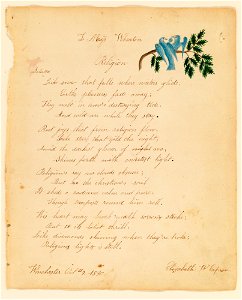 Wharton
Religion
Like snow that falls where waters glide,
Earth's pleasures fade away;
They melt in time's destroying tide,
And cold are while they stay.
But joys that from religion flow,
Like stars that gild the night,
Amid the darkest gloom of
Shines forth with sweetest light.
Religion's ray no clouds obscure;
But on the christian's soul
It sheds a radiance calm and pure,
Though tempests round him roll.
His heart may break with sorrow's stroke,
But to its latest thrill,
Like diamonds shining when they're broke,
Religion lights it still.
Winchester Oct
Elizabeth